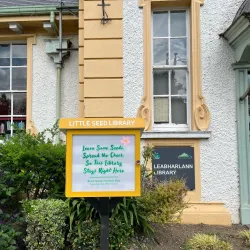 LITTLE SEED LIBRARY
Leave Some Seeds,
Spread the Cheer,
So This Library
Stays Right Here
LEABHARLANN
LIBRARY